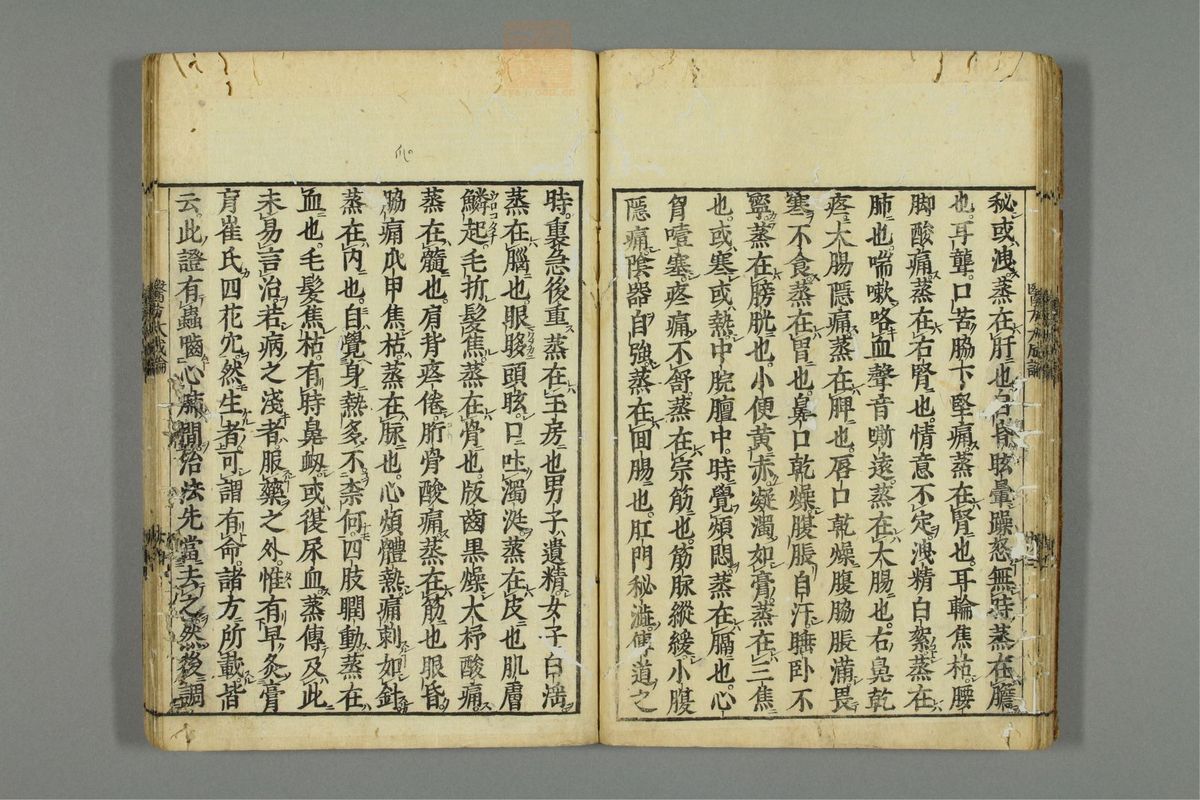 秘或洩蒸在肝也昏眩暈躁怒無時蒸在膽
也耳聾口苦脇下堅痛蒸在腎也耳輪焦枯腰
脚酸痛蒸在右腎也情意不定洩精白絮蒸在
肺也喘嗽咯血聲音嘶遠蒸在大腸也右鼻乾
疼大腸隠痛蒸在脾也唇口乾燥腹脇脹滿畏
寒不食蒸在胃也鼻口乾燥腹脹自汗睡卧不
寧蒸在膀胱也小便黄赤凝濁如膏蒸在三焦
也或寒或熱中脘膻中時覺煩悶蒸在膈也心
胷噎塞疼痛不舒蒸在宗筋也筋脉縱緩小腹
隠痛陰器自強蒸在囬腸也肛門秘澁傳道之
時裏急後重蒸在玉房也男子遺精女子白淫
蒸在腦也眼眵頭眩口吐濁涎蒸在皮也肌膚
鱗起毛折髮焦蒸在骨也版齒黒燥大杼酸痛
蒸在髓也肩背疼倦胻骨酸痛蒸在筋也眼昏
脇痛爪甲焦枯蒸在脉也心煩體熱痛刺如針
蒸在内也自覺身熱多不柰何四肢瞤動蒸在
血也毛髮焦枯有時鼻衂或復尿血蒸傳及此
未易言治若病之淺者服藥之外惟有早灸膏
肓崔氏四花穴然生者可謂有命諸方所載皆
云此證有蟲嚙心肺間治法先當去之然後調